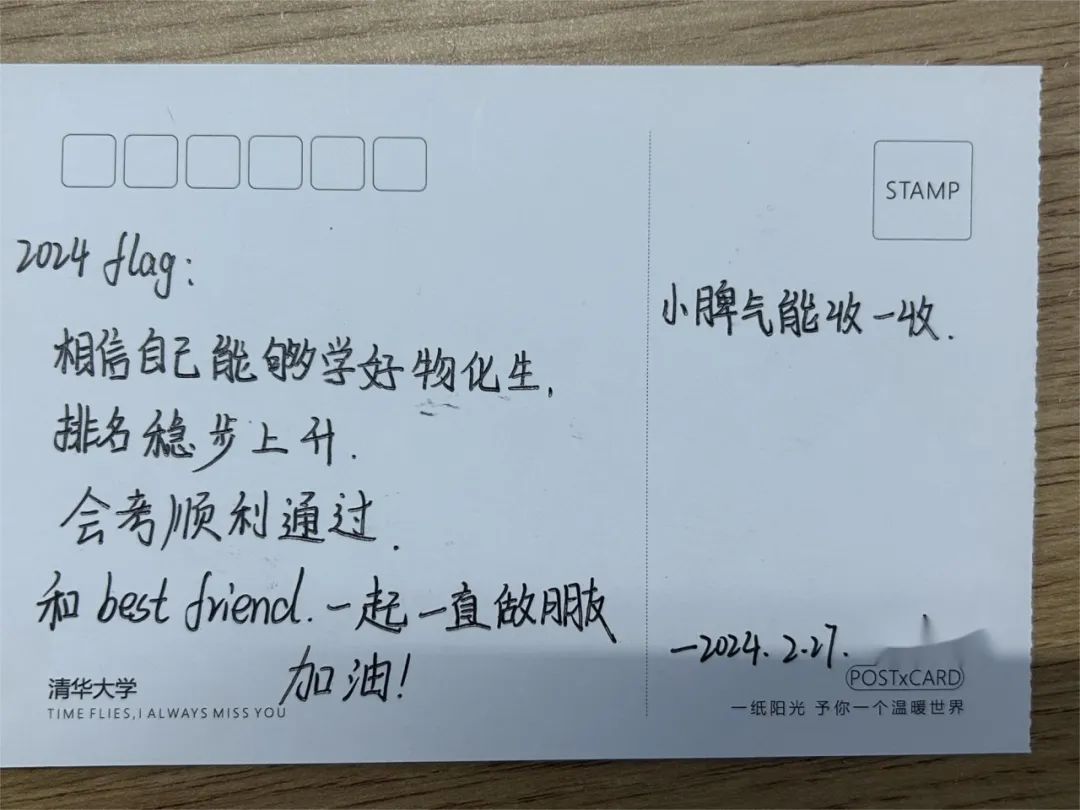 2024 flag:
相信自己能够学好物化生,
排名稳步上升.
会考顺利通过.
和 best friend. 一起一直做朋友
加油!
清华大学
TIME FLIES,I ALWAYS MISS YOU
STAMP
小脾气能收一收.
—2024.2.27.
POSTxCARD
一纸阳光 予你一个温暖世界